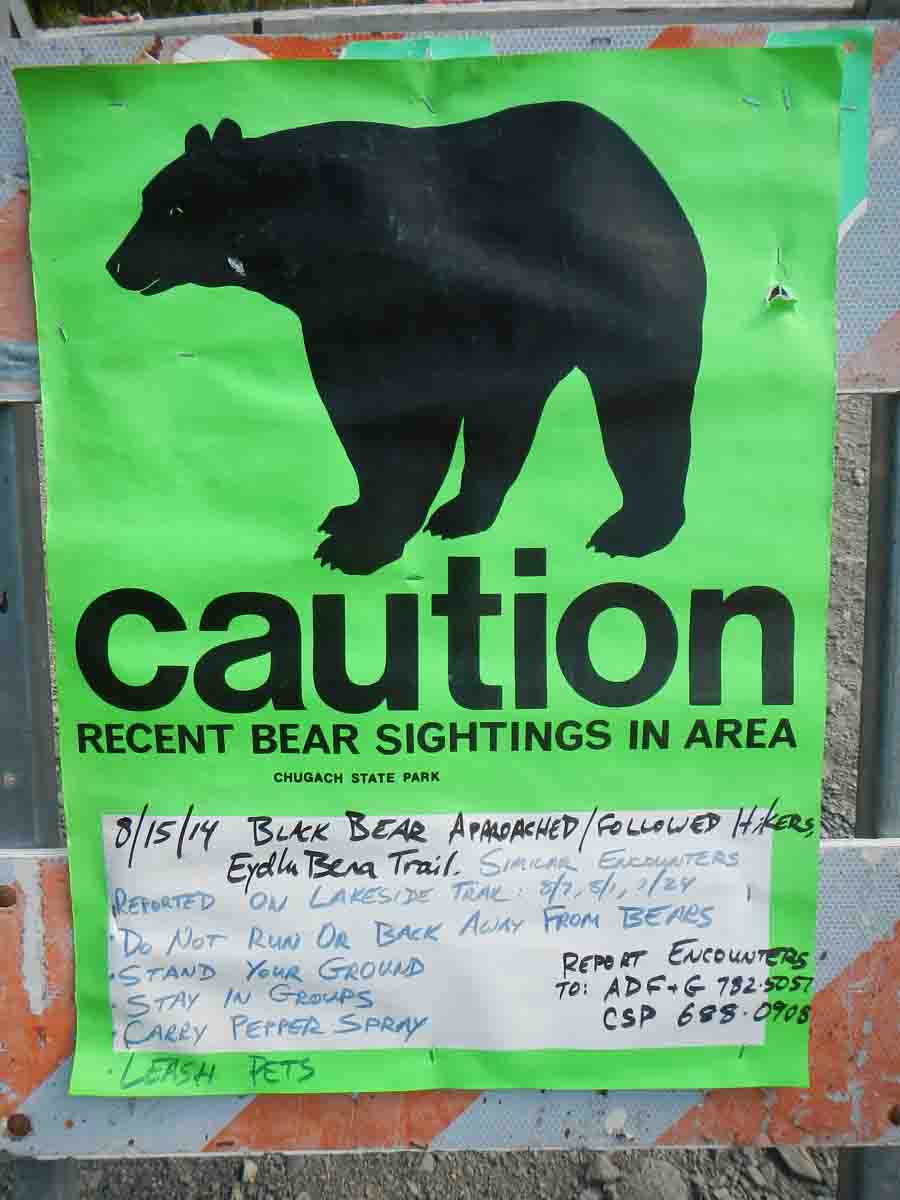 caution
RECENT BEAR SIGHTINGS IN AREA
CHUGACH STATE PARK
8/15/14 BLACK BEAR APPROACHED/FOLLOWED HIKERS,
Eydlu Bena Trail. SIMILAR ENCOUNTERS
REPORTED ON LAKESIDE TRAIL: 8/7, 8/1, 7/24
• DO NOT RUN OR BACK AWAY FROM BEARS
• STAND YOUR GROUND
• STAY IN GROUPS
• CARRY PEPPER SPRAY
• LEASH PETS
REPORT ENCOUNTERS
TO: ADF+G 782-5057
CSP 688-0908